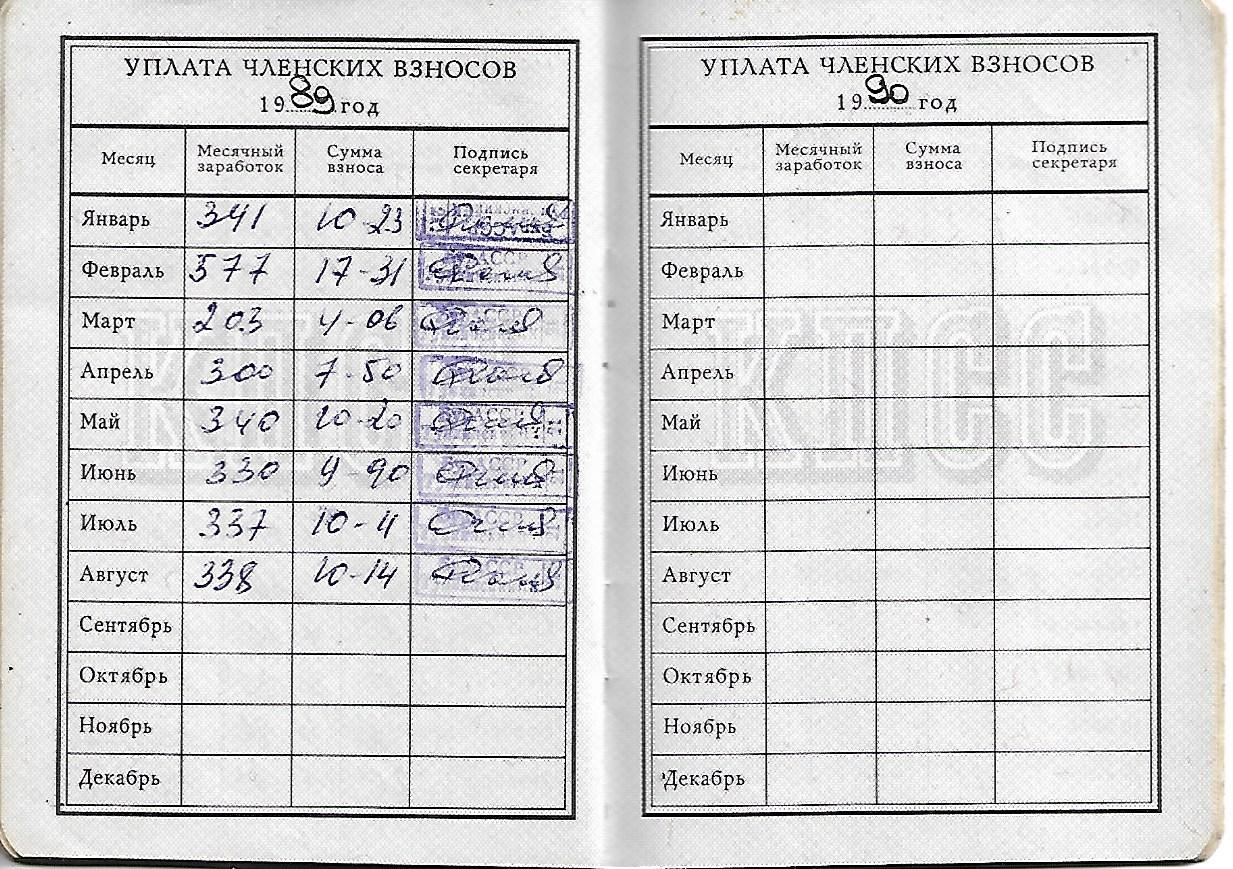 УПЛАТА ЧЛЕНСКИХ ВЗНОСОВ
1989 год
Месяц Месячный заработок Сумма взноса Подпись секретаря
Январь 341 10-23
Февраль 577 17-31
Март 203 4-06
Апрель 300 7-50
Май 340 10-20
Июнь 330 9-90
Июль 337 10-11
Август 338 10-14
Сентябрь
Октябрь
Ноябрь
Декабрь
КПСС
УПЛАТА ЧЛЕНСКИХ ВЗНОСОВ
1990 год
Месяц Месячный заработок Сумма взноса Подпись секретаря
Январь
Февраль
Март
Апрель
Май
Июнь
Июль
Август
Сентябрь
Октябрь
Ноябрь
Декабрь
КПСС